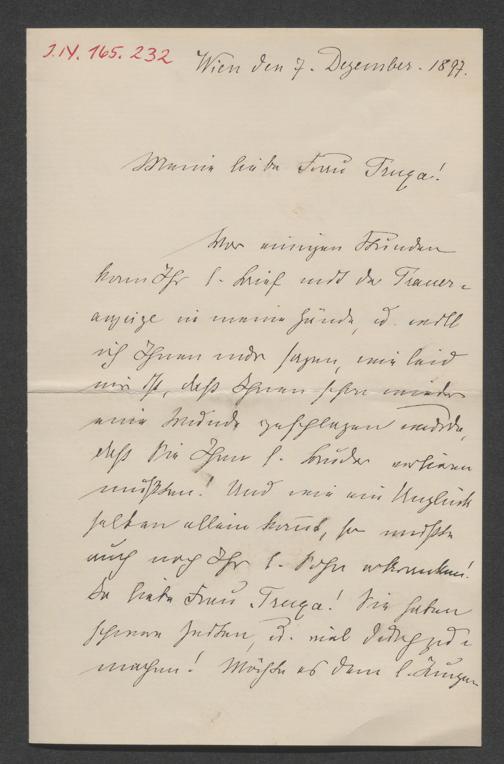 J.N. 165.232
Wien den 7. Dezember. 1897.
Meine liebe Frau Truxa!
Vor einigen Stunden
kam Ihr l. Brief mit der Trauer=
anzeige in meine Hände, u. will
ich Ihnen nur sagen, wie leid
mir ist, daß Ihnen schon wieder
eine Wunde geschlagen wurde,
daß Sie Ihren l. Bruder verlieren
mußten! Und wie ein Unglück
selten allein kommt, so mußte
auch noch Ihr l. Sohn erkranken!
Sie liebe Frau Truxa! Sie haben
schwere Zeiten, u. viel
machen! Möchte es dem l. Jungen